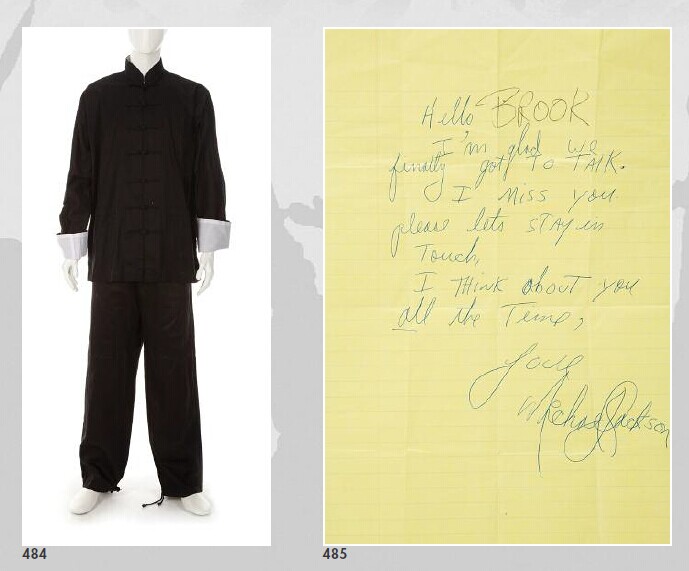 Hello BROOK
I'm glad we
finally got To TAlK.
I Miss you
please lets STAY in
Touch,
I THinK about you
all the Time,
Love
Michael Jackson
484
485